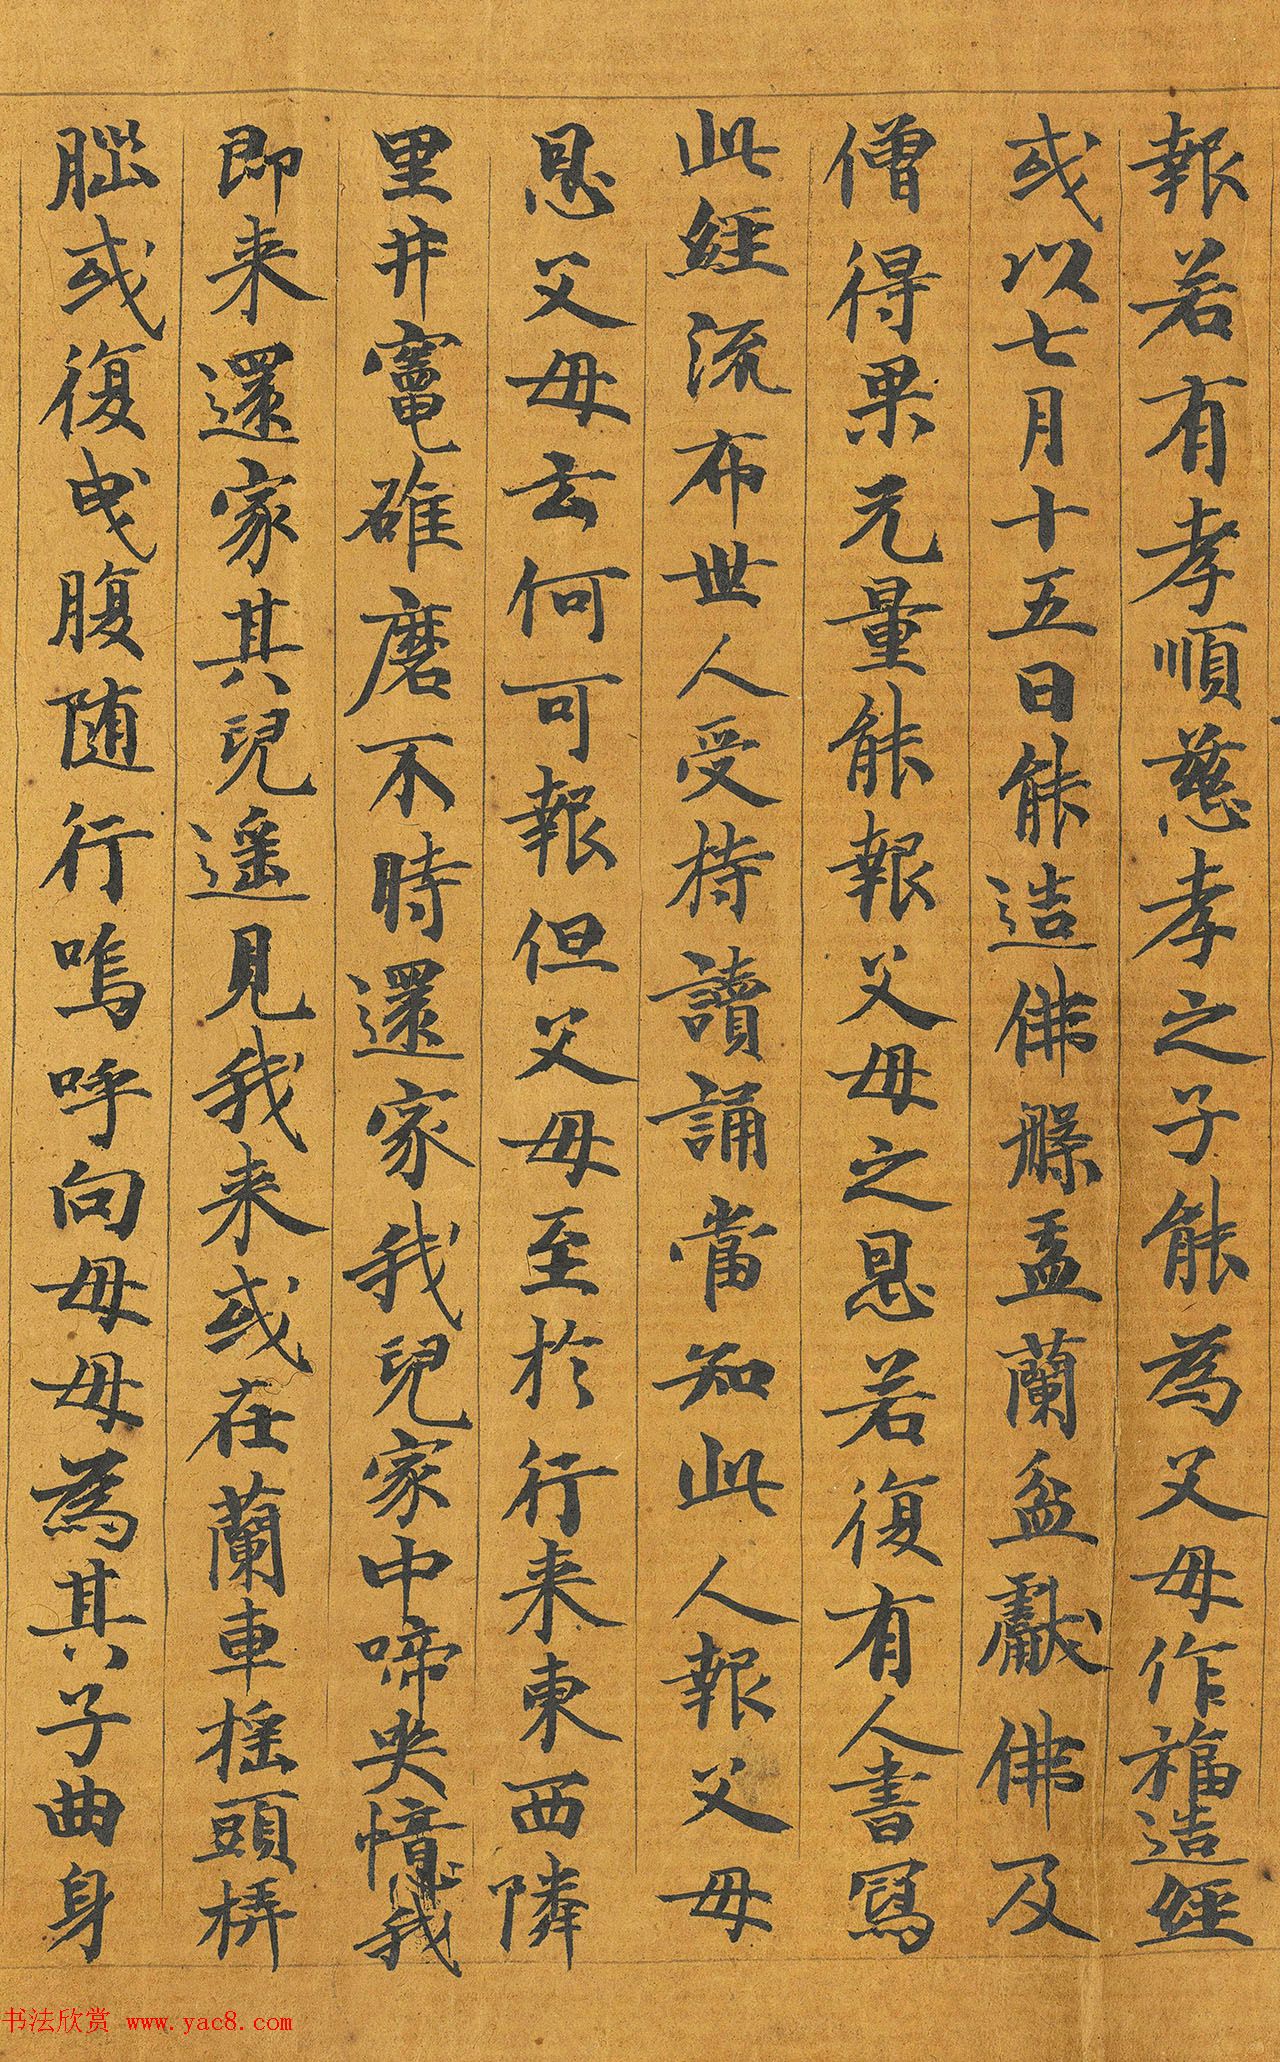 報若有孝順慈孝之子能為父母作福造經
或以七月十五日能造佛槃盂蘭盆獻佛及
僧得果无量能報父母之恩若復有人書寫
此經流布世人受持讀誦當知此人報父母
恩父母云何可報但父母至於行来東西隣
里井竈碓磨不時還家我兒家中啼哭憶我
即来還家其兒遥見我来或在蘭車摇頭弄
腦或復曳腹随行嗚呼向母母為其子曲身
书法欣赏 www.yac8.com